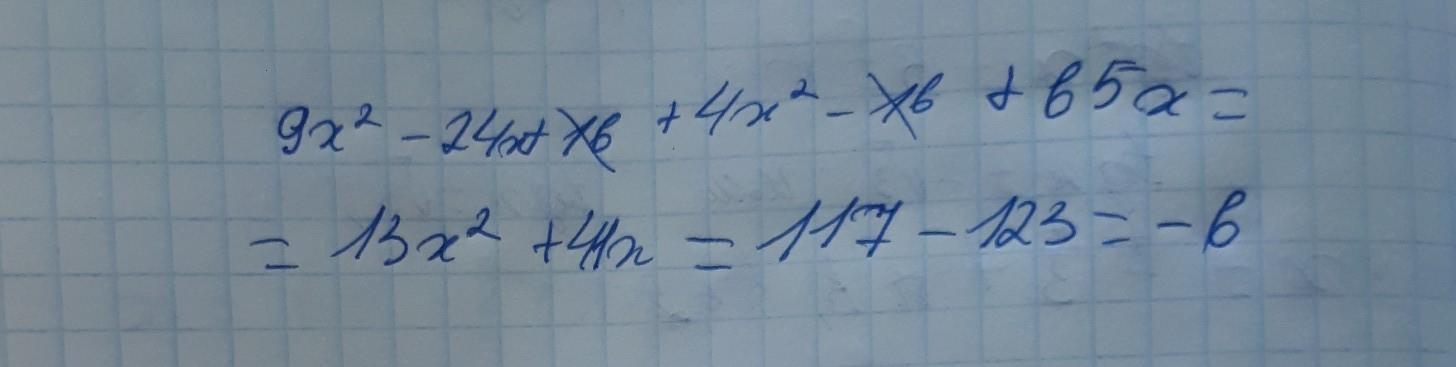 9x² - 24x + 16 + 4x² - 16 + 65x =
= 13x² + 41x = 117 - 123 = - 6